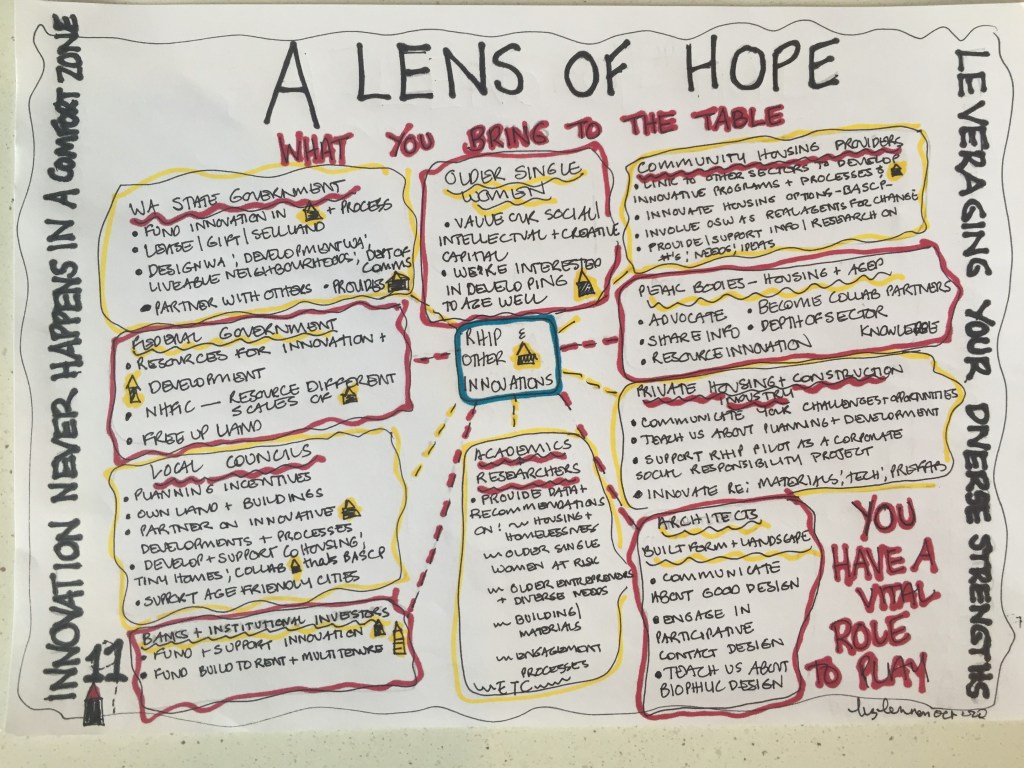 A LENS OF HOPE
WHAT YOU BRING TO THE TABLE
INNOVATION NEVER HAPPENS IN A COMFORT ZONE
WA STATE GOVERNMENT
• FUND INNOVATION IN - PROCESS
• LEASE/GIFT/SELL LAND
• DESIGNWA', DEVELOPMENTWA',
LIVEABLE NEIGHBOURHOODS', DEPT OF COMMS
• PARTNER WITH OTHERS • PROVIDES
FEDERAL GOVERNMENT
• RESOURCES FOR INNOVATION +
DEVELOPMENT
• NHFIC — RESOURCE DIFFERENT
SCALES OF
• FREE UP LAND
LOCAL COUNCILS
• PLANNING INCENTIVES
• OWN LAND + BUILDINGS
• PARTNER ON INNOVATIVE
DEVELOPMENTS + PROCESSES
• DEVELOP + SUPPORT COHOUSING',
TINY HOMES', COLLAB thus BASCP
• SUPPORT AGE FRIENDLY CITIES
BANKS + INSTITUTIONAL INVESTORS
• FUND + SUPPORT INNOVATION
• FUND BUILD TO RENT + MULTITENURE
11
OLDER SINGLE
WOMEN
• VALUE OUR SOCIAL/
INTELLECTUAL + CREATIVE
CAPITAL
• WE'RE INTERESTED
IN DEVELOPING
TO AGE WELL
RHIP &
OTHER
INNOVATIONS
ACADEMICS
RESEARCHERS
• PROVIDE DATA +
RECOMMENDATIONS
ON: ~ HOUSING +
HOMELESSNESS
~ OLDER SINGLE
WOMEN AT RISK
~ OLDER ENTREPRENEURS
+ DIVERSE NEEDS
~ BUILDING/
MATERIALS
~ ENGAGEMENT
PROCESSES
~ ETC ~
COMMUNITY HOUSING PROVIDERS
• LINK TO OTHER SECTORS TO DEVELOP
INNOVATIVE PROGRAMS + PROCESSES &
• INNOVATE HOUSING OPTIONS - BASCP -
• INVOLVE OSW AS REAL AGENTS FOR CHANGE
• PROVIDE/SUPPORT INFO/RESEARCH ON
#'s', NEEDS', IDEAS
PEAK BODIES - HOUSING + AGED
• ADVOCATE • BECOME COLLAB PARTNERS
• SHARE INFO • DEPTH OF SECTOR
• RESOURCE INNOVATION KNOWLEDGE
PRIVATE HOUSING + CONSTRUCTION
INDUSTRY
• COMMUNICATE YOUR CHALLENGES + OPPORTUNITIES
• TEACH US ABOUT PLANNING + DEVELOPMENT
• SUPPORT RHIP PILOT AS A CORPORATE
SOCIAL RESPONSIBILITY PROJECT
• INNOVATE RE; MATERIALS', TECH', PREFABS
ARCHITECTS
BUILT FORM + LANDSCAPE
• COMMUNICATE
ABOUT GOOD DESIGN
• ENGAGE IN
PARTICIPATIVE
CONTACT DESIGN
• TEACH US ABOUT
BIOPHILIC DESIGN
YOU
HAVE A
VITAL
ROLE
TO PLAY
LEVERAGING YOUR DIVERSE STRENGTHS